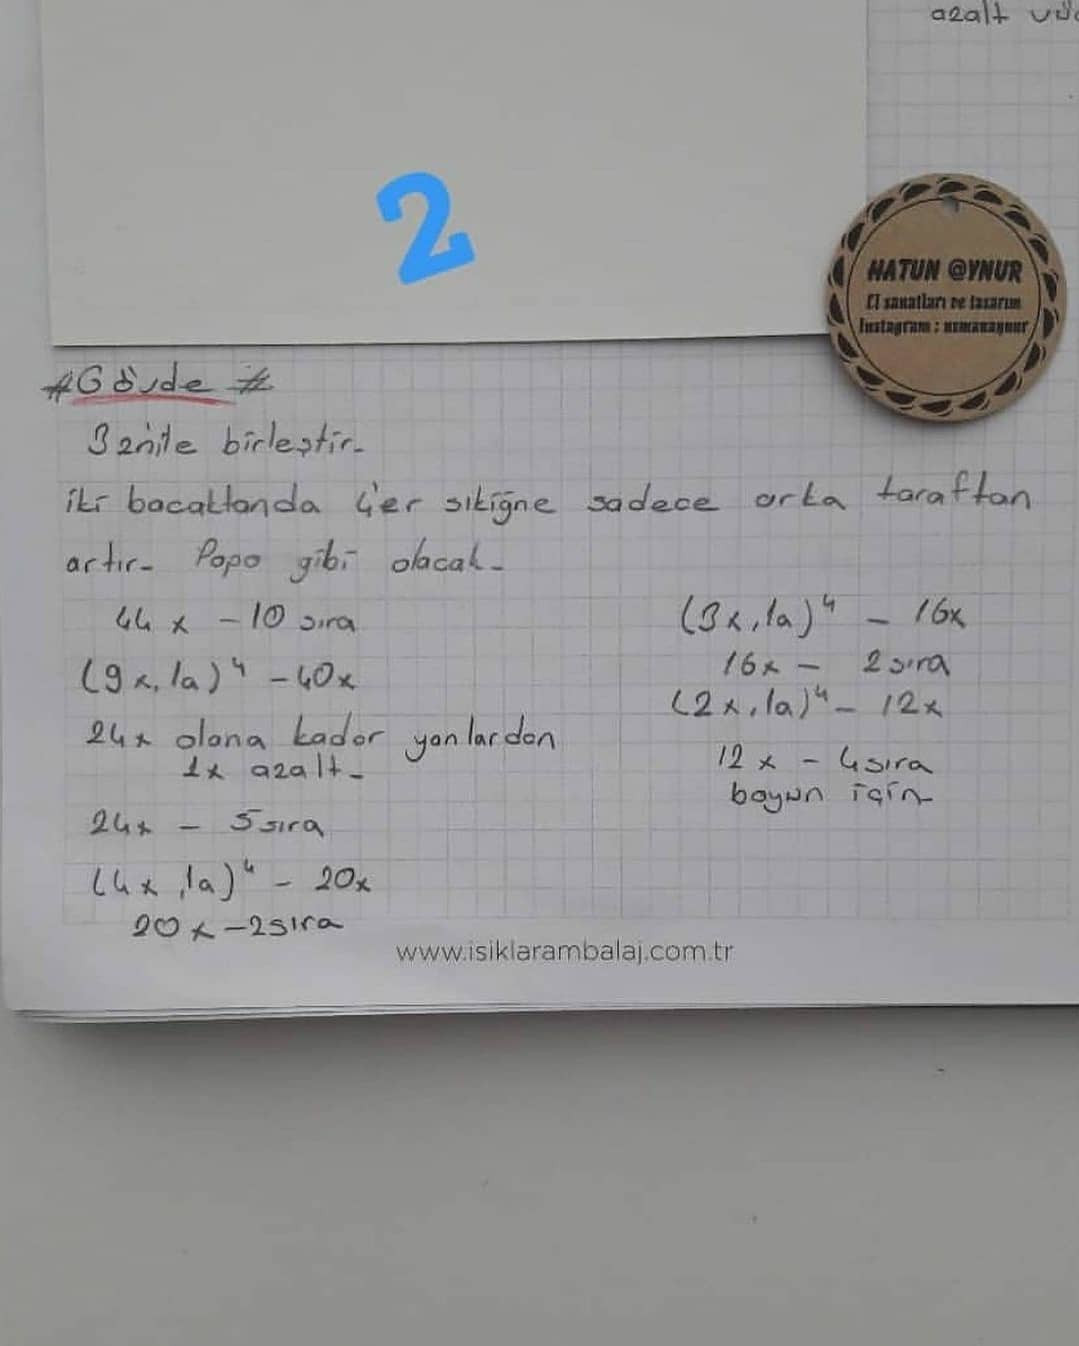 azalt
2
HATUN @YNUR
El sanatları ve tasarım
Instagram : usmanaynur
#Gövde#
3 zn ile birleştir-
iki bacaktanda 4'er sıkiğne sadece arka taraftan
artır- Popo gibi olacak-
44 x - 10 sıra
(9x, 1a)⁴ - 40x
24x olana kadar yanlardan
1x azalt-
24x - 5 sıra
(4x, 1a)⁴ - 20x
20x - 2 sıra
(3x, 1a)⁴ - 16x
16x - 2 sıra
(2x, 1a)⁴ - 12x
12x - 4 sıra
boyun için-
www.isiklarambalaj.com.tr